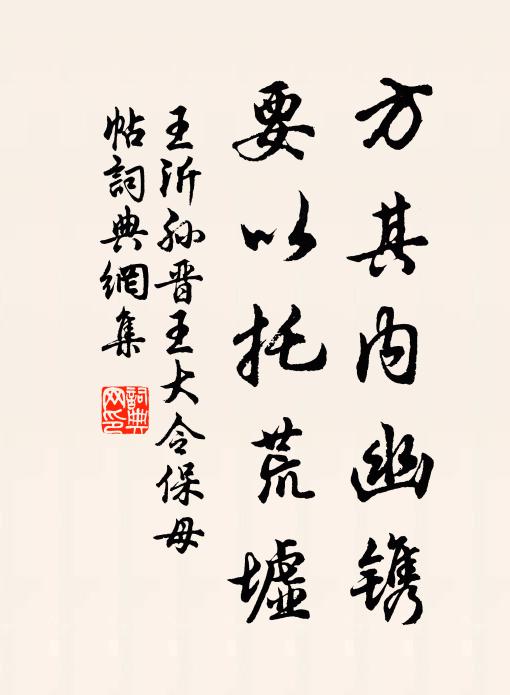 方其内幽镌
要以托荒墟
王沂孙晋王大令保母
帖詞典網集
詞典网印